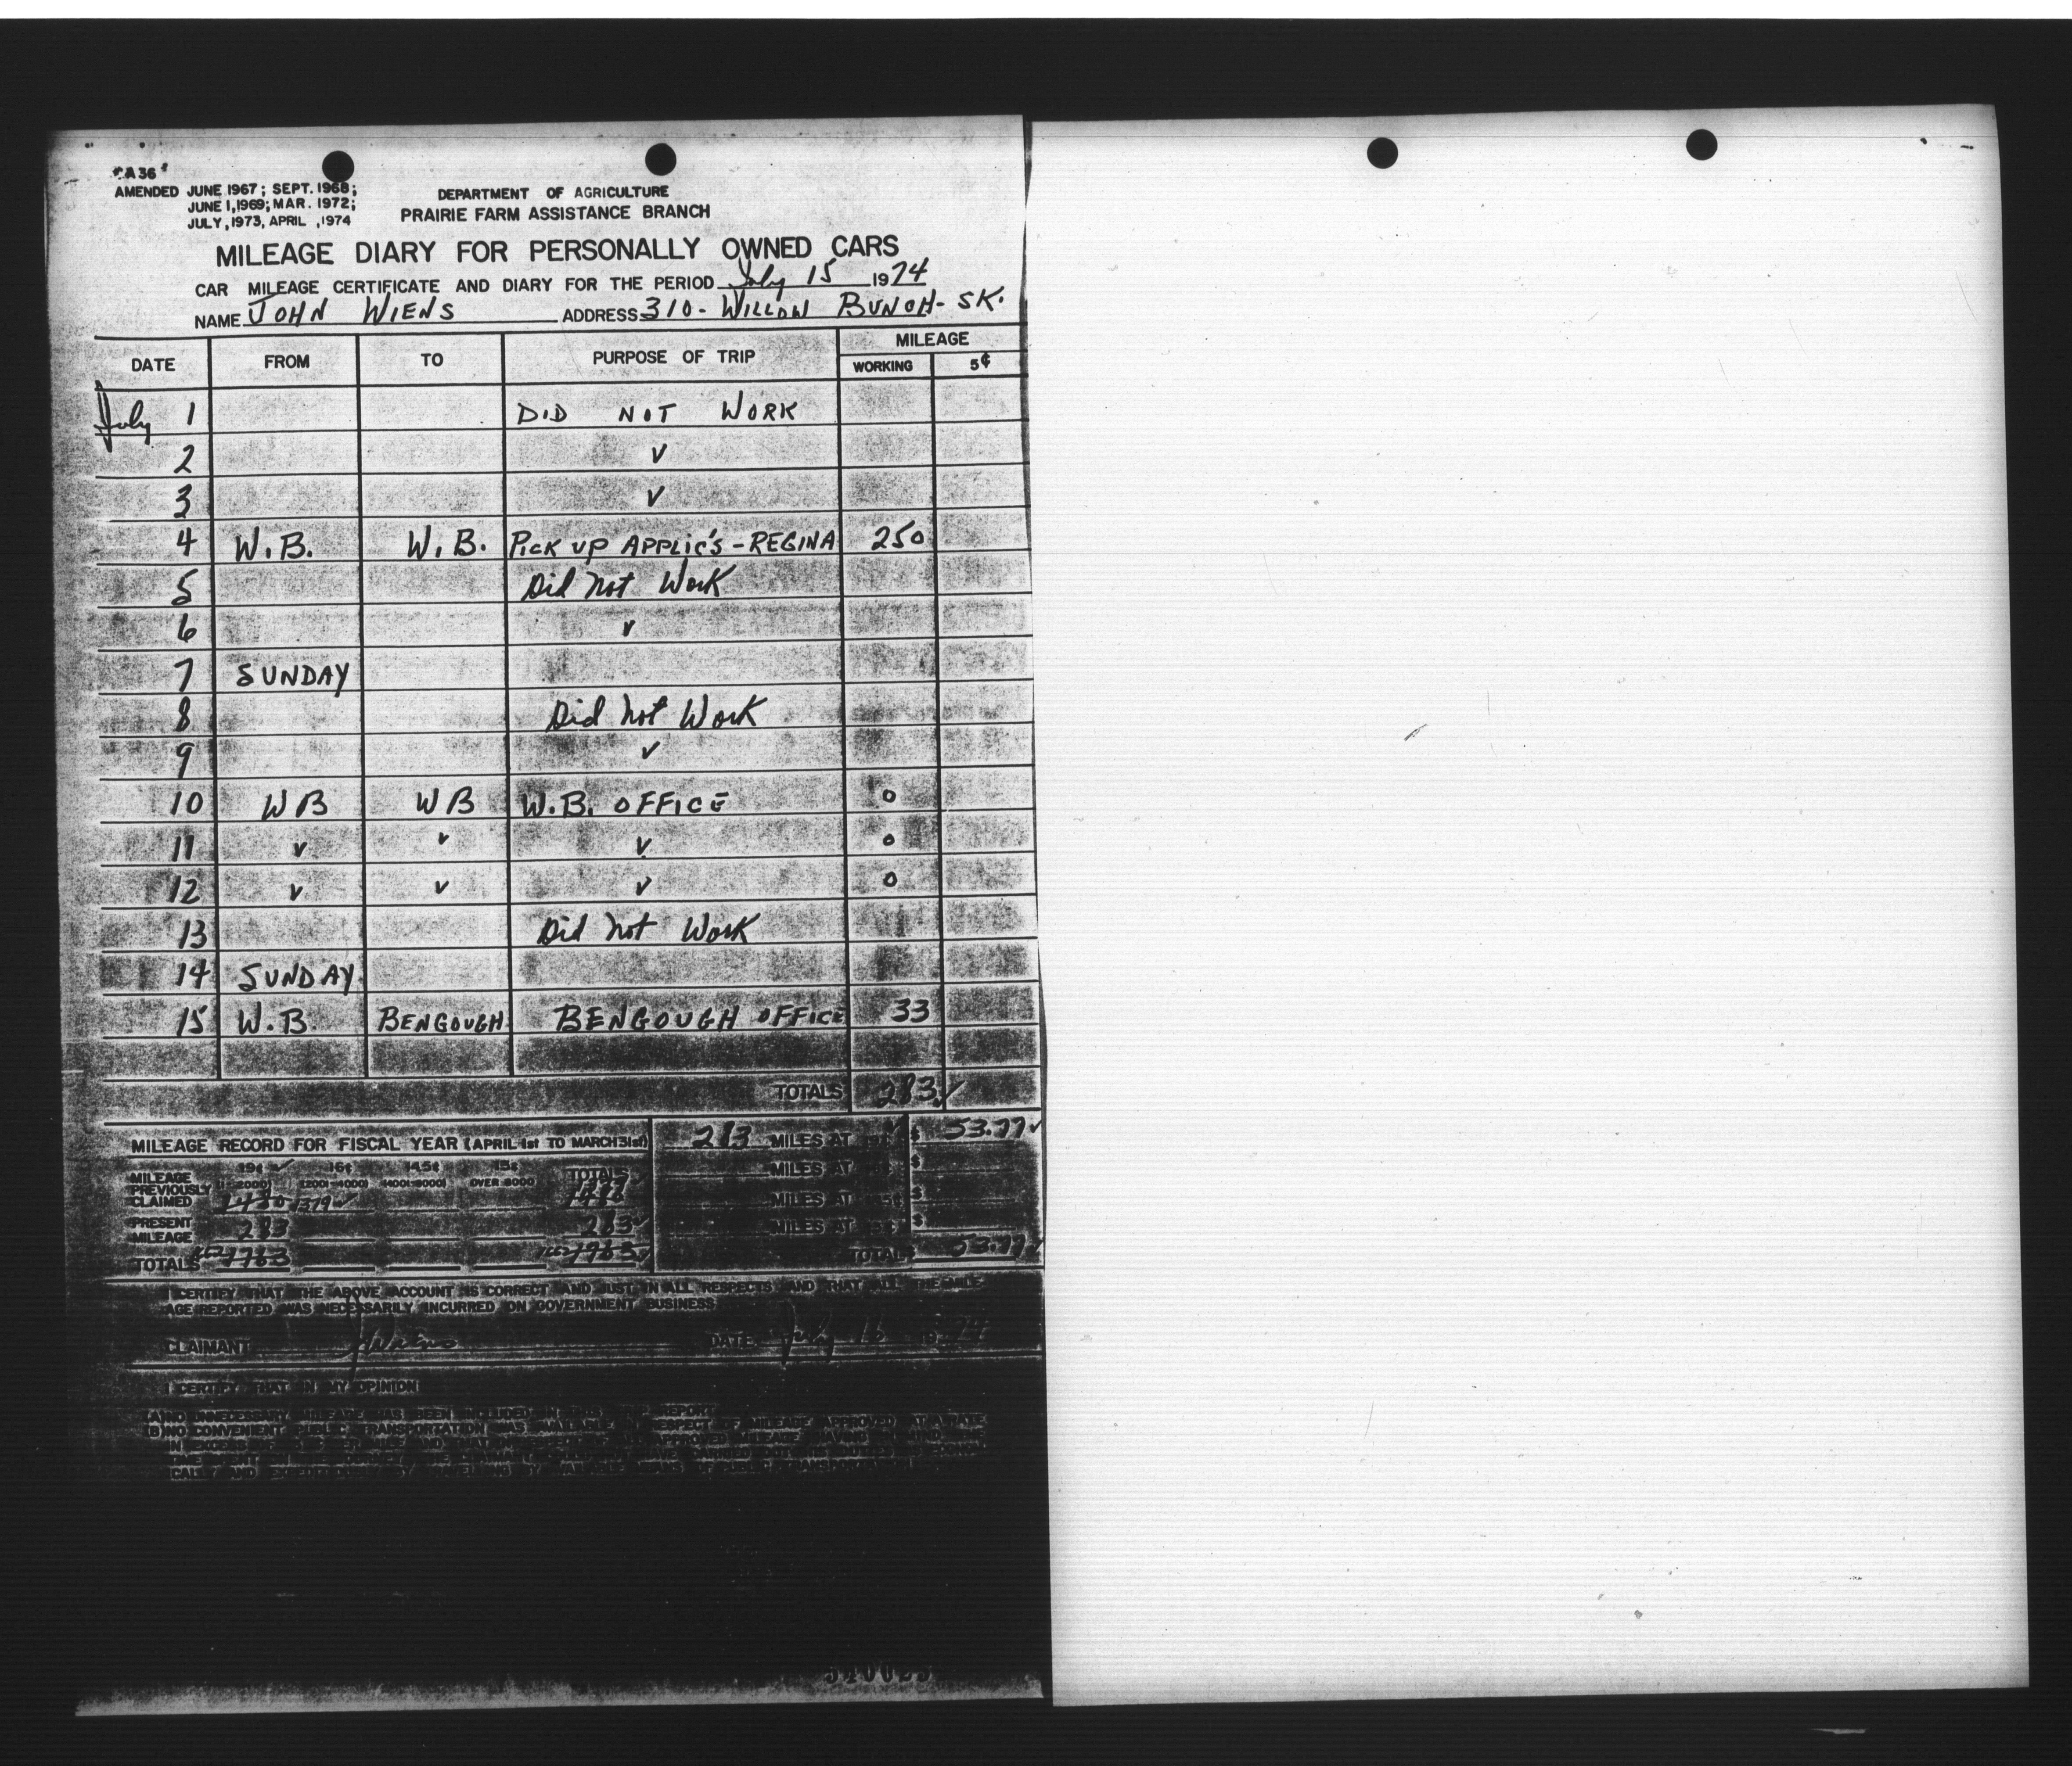 "A36"
AMENDED JUNE 1967; SEPT. 1968;
JUNE 1, 1969; MAR. 1972;
JULY, 1973, APRIL , 1974
DEPARTMENT OF AGRICULTURE
PRAIRIE FARM ASSISTANCE BRANCH
MILEAGE DIARY FOR PERSONALLY OWNED CARS
CAR MILEAGE CERTIFICATE AND DIARY FOR THE PERIOD July 15 1974
NAME JOHN WIENS ADDRESS 310 - WILLOW BUNCH - SK.
DATE FROM TO PURPOSE OF TRIP MILEAGE
WORKING 5¢
July 1 DID NOT WORK
2 v
3 v
4 W.B. W.B. PICK UP APPLIC'S - REGINA 250
5 Did not Work
6 v
7 SUNDAY
8 Did not Work
9 v
10 WB WB W.B. OFFICE 0
11 v v v 0
12 v v v 0
13 Did not Work
14 SUNDAY
15 W.B. BENGOUGH BENGOUGH OFFICE 33
TOTALS 283 ✓
MILEAGE RECORD FOR FISCAL YEAR (APRIL 1st TO MARCH 31st)
19¢ ✓ 16¢ 14.5¢ 15¢ TOTALS
MILEAGE PREVIOUSLY CLAIMED (1-2000) (2001-4000) (4001-8000) OVER 8000
1480 1379 ✓ 1480
PRESENT MILEAGE 283 283 ✓
TOTALS 1662 1763 1662 1763 ✓
283 MILES AT 19¢ $ 53.77 ✓
MILES AT $
MILES AT $
MILES AT $
TOTAL $ 53.77 ✓
I CERTIFY THAT THE ABOVE ACCOUNT IS CORRECT AND JUST IN ALL RESPECTS AND THAT ALL THE MILE-
AGE REPORTED WAS NECESSARILY INCURRED ON GOVERNMENT BUSINESS
CLAIMANT J Wiens DATE July 16 1974
I CERTIFY THAT IN MY OPINION
(A) NO UNNECESSARY MILEAGE HAS BEEN INCLUDED IN THIS TRIP REPORT
(B) NO CONVENIENT PUBLIC TRANSPORTATION WAS AVAILABLE IN RESPECT OF MILEAGE APPROVED AT A RATE